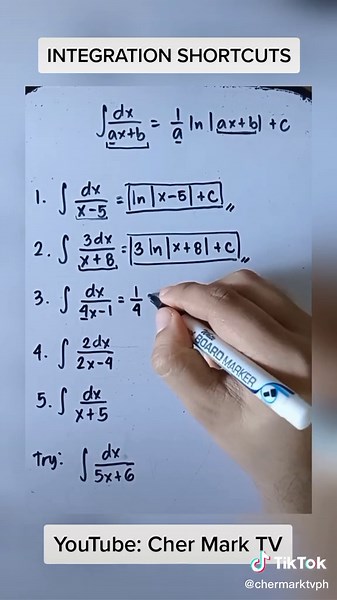 INTEGRATION SHORTCUTS
∫ dx/(ax+b) = 1/a ln|ax+b| + C
1. ∫ dx/(x-5) = ln|x-5| + C
2. ∫ 3dx/(x+8) = 3 ln|x+8| + C
3. ∫ dx/(4x-1) = 1/4
4. ∫ 2dx/(2x-4)
5. ∫ dx/(x+5)
Try: ∫ dx/(5x+6)
BOARD MARKER
YouTube: Cher Mark TV
TikTok
@chermarktvph